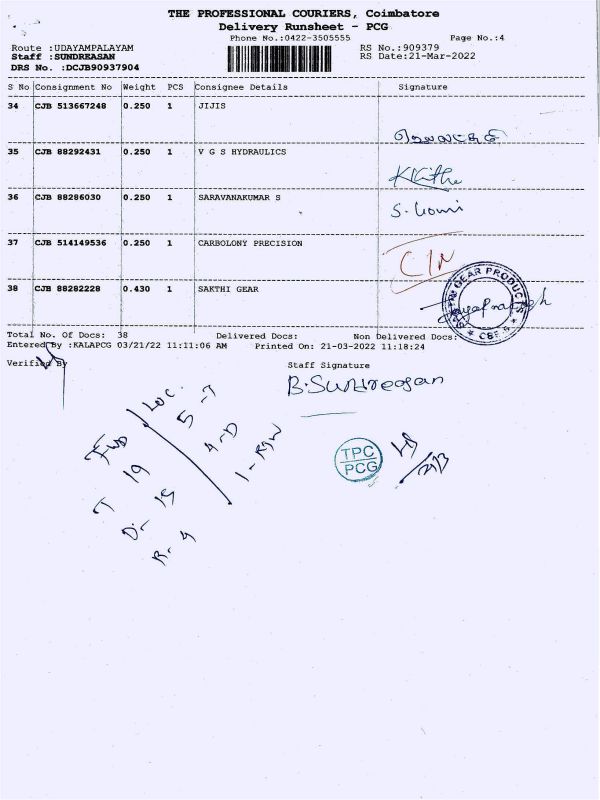 THE PROFESSIONAL COURIERS, Coimbatore
Delivery Runsheet - PCG
Phone No.:0422-3505555 Page No.:4
Route :UDAYAMPALAYAM RS No.:909379
Staff :SUNDREASAN RS Date:21-Mar-2022
DRS No. :DCJB90937904
S No Consignment No Weight PCS Consignee Details Signature
34 CJB 513667248 0.250 1 JIJIS
35 CJB 88292431 0.250 1 V G S HYDRAULICS
36 CJB 88286030 0.250 1 SARAVANAKUMAR S
37 CJB 514149536 0.250 1 CARBOLONY PRECISION
38 CJB 88282228 0.430 1 SAKTHI GEAR
Total No. Of Docs: 38 Delivered Docs: Non Delivered Docs:
Entered By :KALAPCS 03/21/22 11:11:06 AM Printed On: 21-03-2022 11:18:24
Verified By Staff Signature
B.Sundreasan
LOC.
5 -T
4 -D
T 19
TPC
PCG